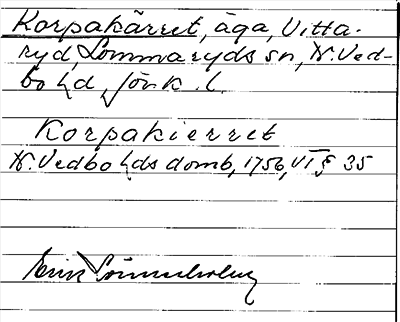 Korpakärret, äga, Vitta-
ryd, Lommaryds sn, N. Ved-
bo hd, Jönk. l.
Korpakierret
N. Vedbo hds domb, 1756, VI § 35
Erik